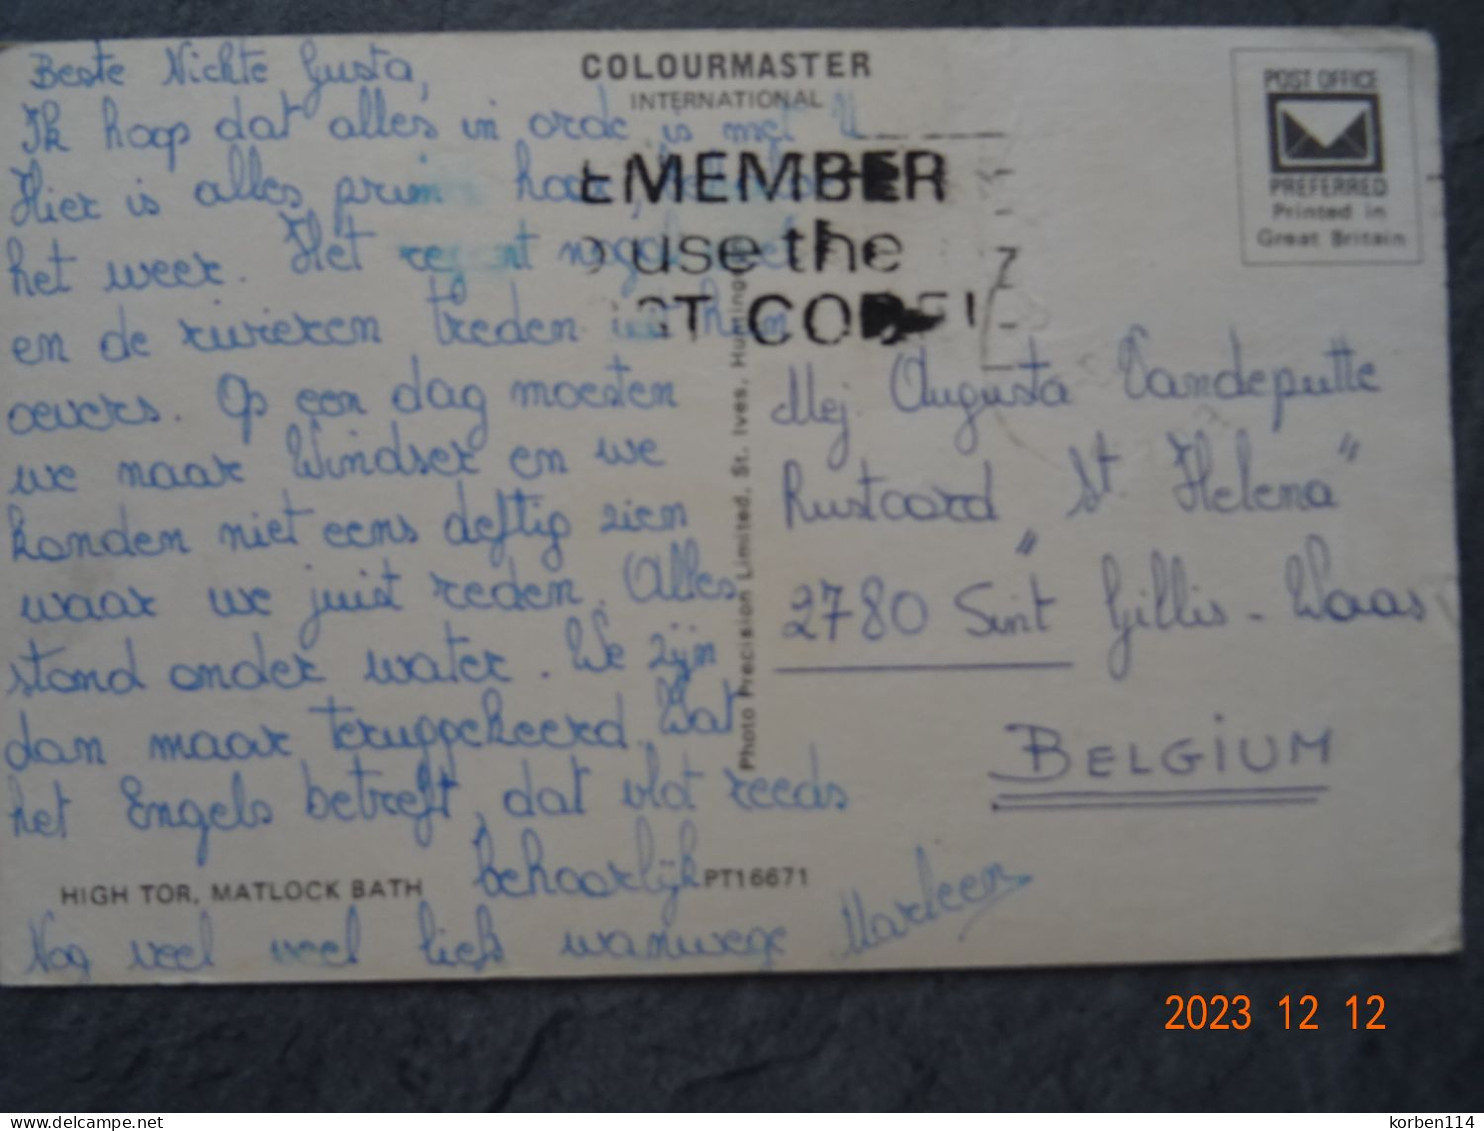 Beste Nichte Gusta,
Ik hoop dat alles in orde is met U
Hier is alles prima hoor,
het weer. Het regent nogal veel
en de rivieren treden uit hun
oevers. Op een dag moesten
we naar Windser en we
konden niet eens deftig zien
waar we juist reden. Alles
stond onder water. We zijn
dan maar teruggekeerd. Wat
het Engels betreft, dat vlot reeds
behoorlijk
Nog veel veel liefs vanwege Marleen
COLOURMASTER
INTERNATIONAL
EMEMBER
use the
ST CODE!
POST OFFICE
PREFERRED
Printed in
Great Britain
Photo Precision Limited, St. Ives,
Mej. Augusta Vandeputte
Rustoord "St. Helena"
2780 Sint Gillis - Waas
BELGIUM
HIGH TOR, MATLOCK BATH
PT16671
2023 12 12
korben114